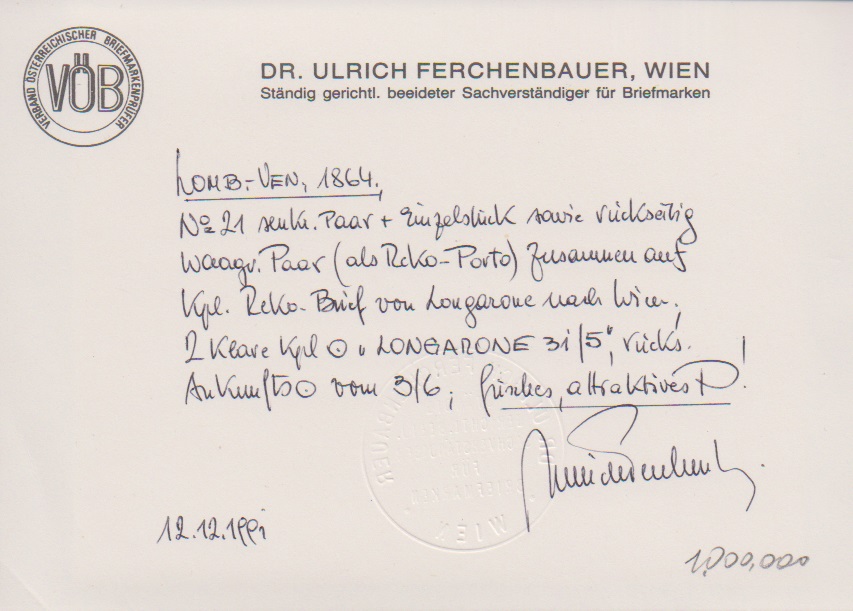 VERBAND ÖSTERREICHISCHER BRIEFMARKENPRÜFER
VÖB
DR. ULRICH FERCHENBAUER, WIEN
Ständig gerichtl. beeideter Sachverständiger für Briefmarken
LOMB.-VEN, 1864.,
No 21 senkr. Paar + Einzelstück sowie rückseitig
waagr. Paar (als Reko-Porto) zusammen auf
Kpl. Reko-Brief von Longarone nach Wien,
2 klare Kpl ⊙ "LONGARONE 31/5", rücks.
Ankunfts⊙ vom 3/6; frisches, attraktives P!
WIEN
12.12.1991
1,000,000